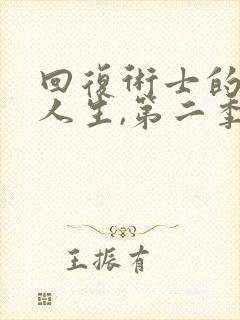 回復術士的
人生,第二季
王振有